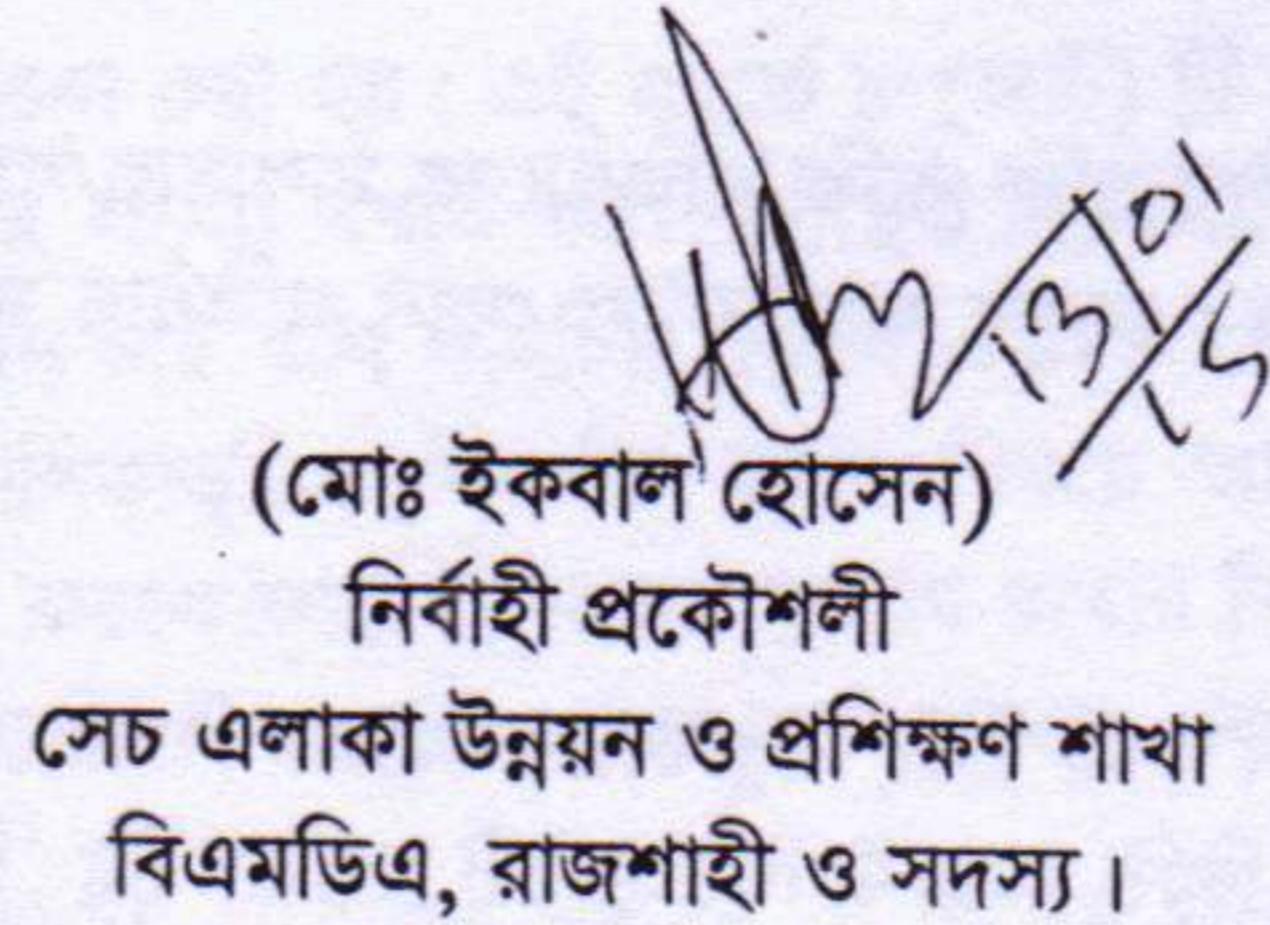 ১৩/০১/১৫
(মোঃ ইকবাল হোসেন)
নির্বাহী প্রকৌশলী
সেচ এলাকা উন্নয়ন ও প্রশিক্ষণ শাখা
বিএমডিএ, রাজশাহী ও সদস্য।